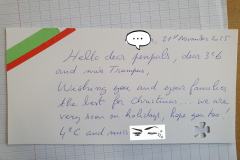 21st November 2015
Hello dear penpals, dear 3°6
and miss Trampus,
Wishing you and your families
the best for Christmas... we are
very soon on holidays, hope you too!
4°C and miss